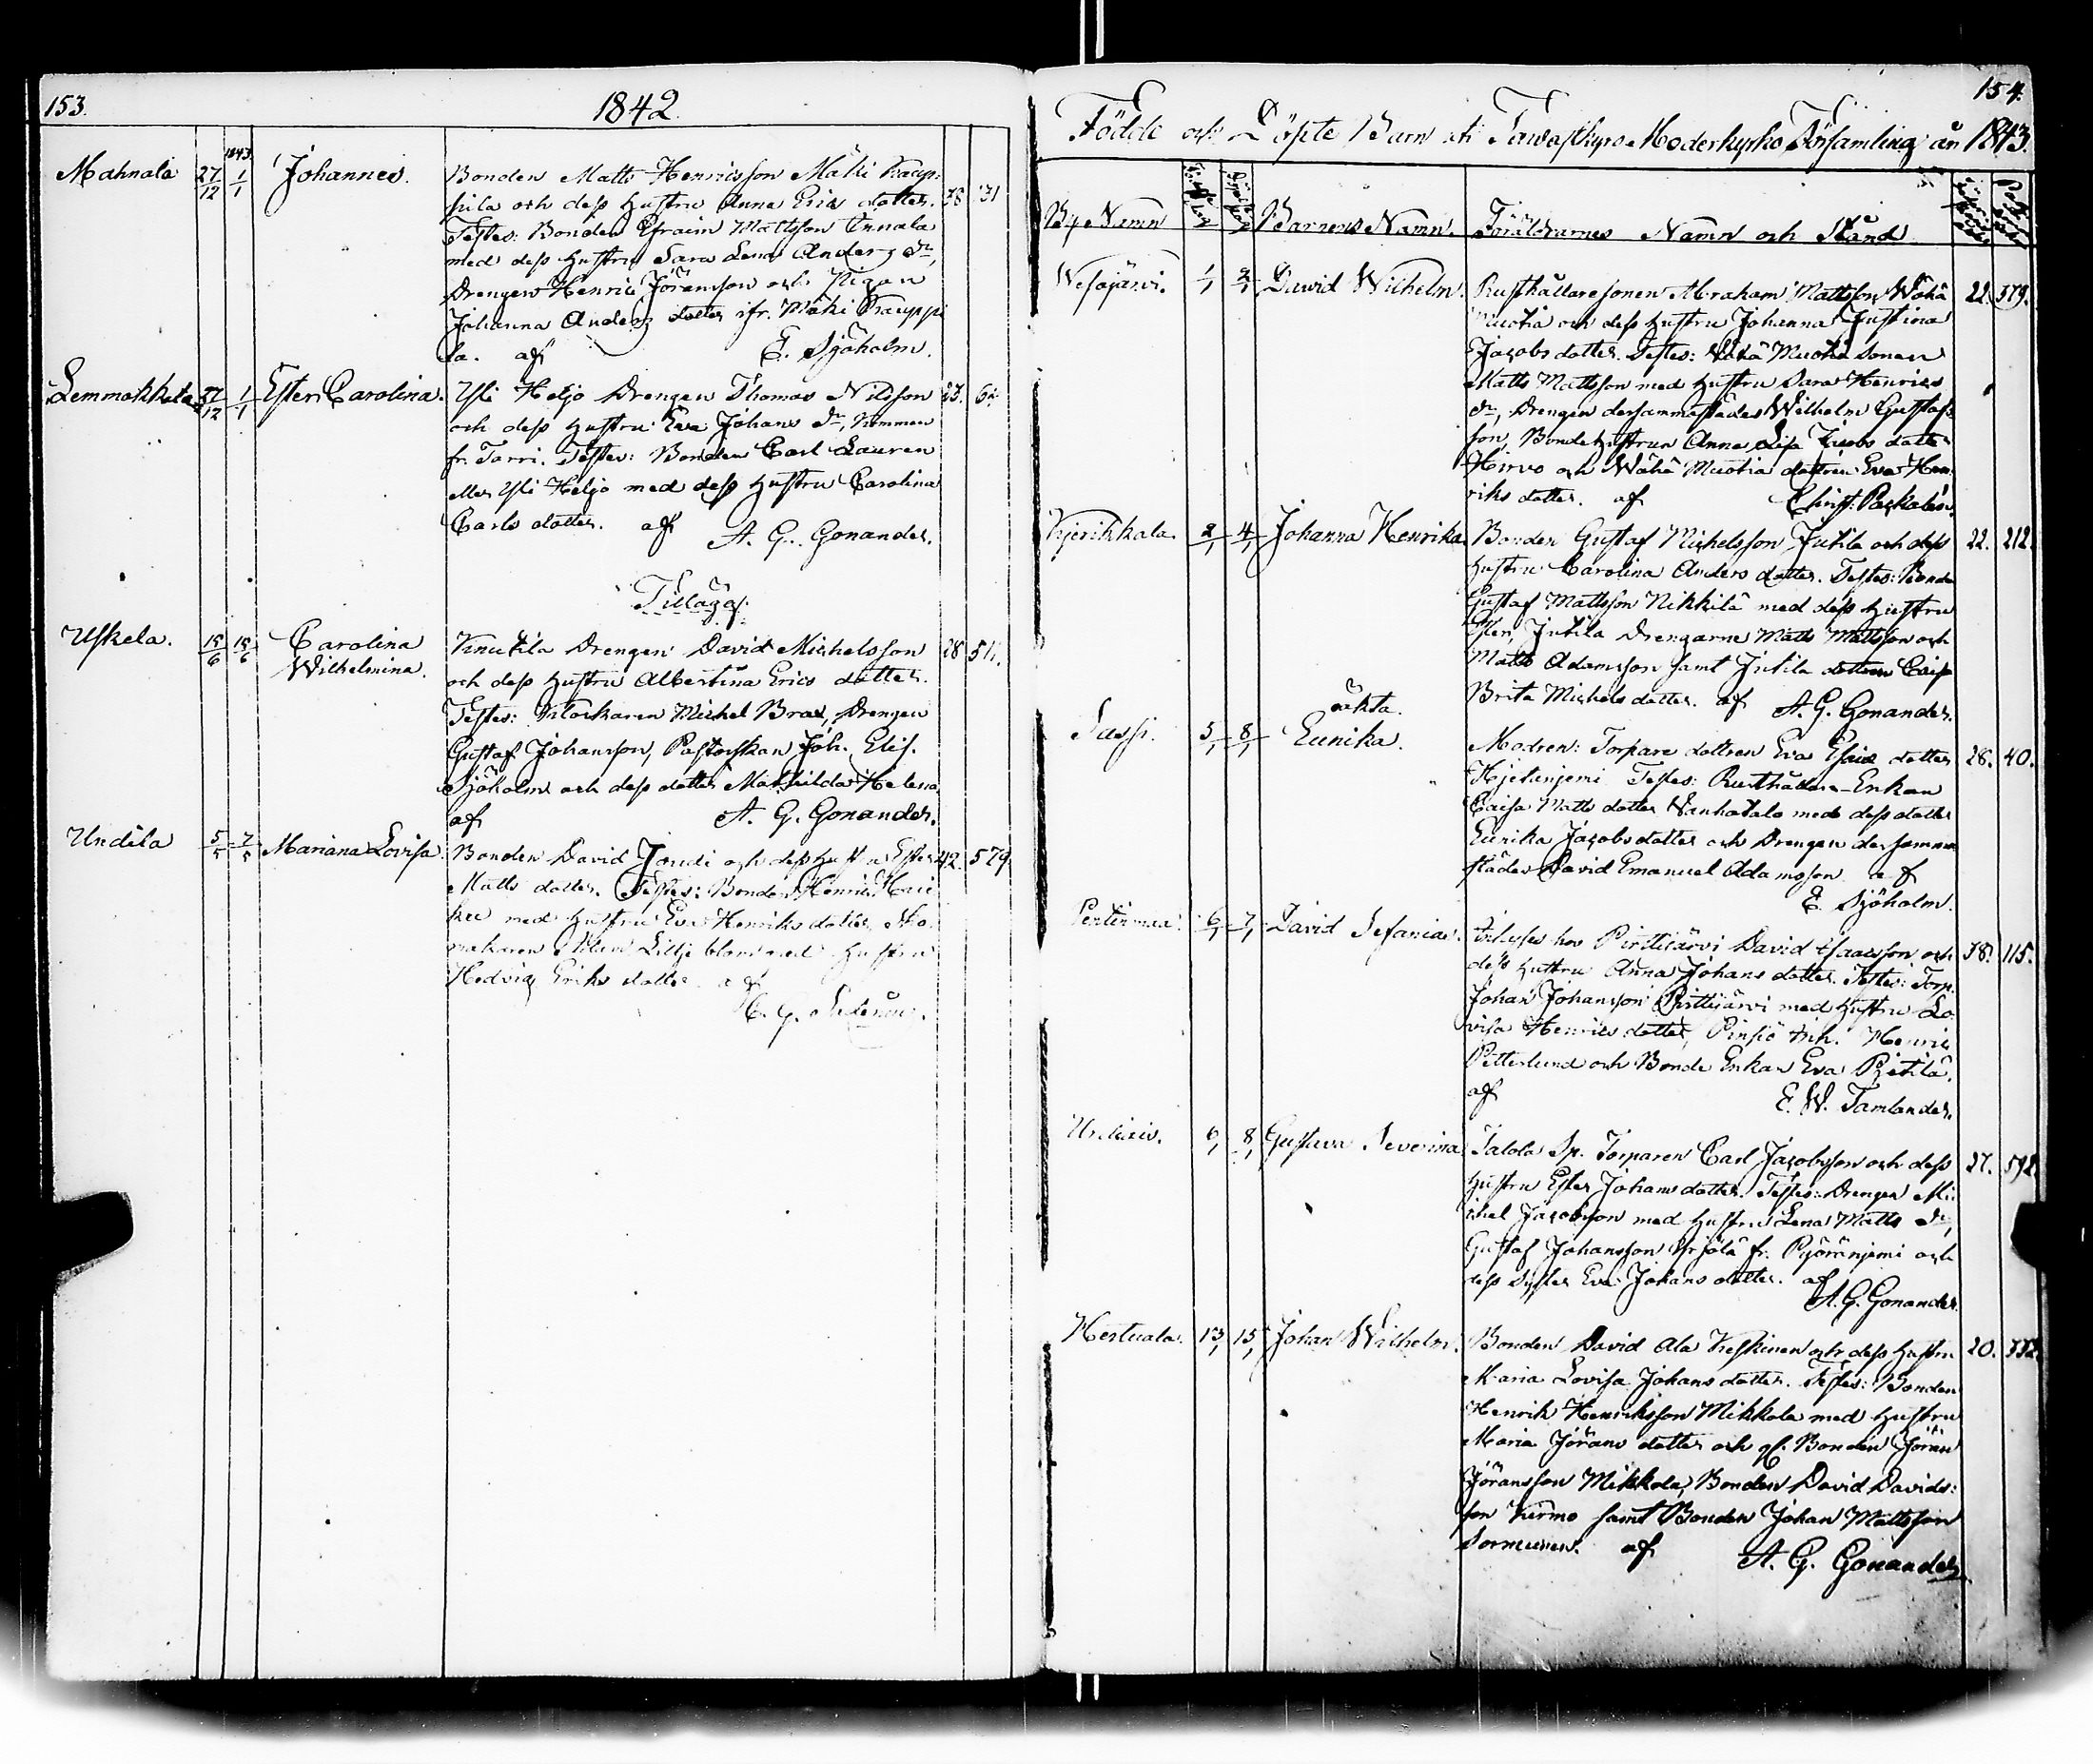 153.
1842.
Mahnala 27/12 1843 1/1 Johannes. Bonden Matts Henricsson Mäki Kaup:
pila och dess Hustru Anna Erics dotter. 38 31
Testes: Bonden Efraim Mattsson Ennala
med dess Hustru Sara Lena Anders dr,
Drengen Henric Jöransson och Pigan
Johanna Anders dotter ifr. Mäki Kauppi
la. af E. Sjöholm.
Lemmakkala 27/12 1/1 Ester Carolina. Yli Heijo Drengen Thomas Nilsson 23.
och dess Hustru Eva Johans dr, kommen
fr. Torri. Testes: Bonden Carl Lauren
eller Yli Heijo med dess Hustru Carolina
Carls dotter. af A. G. Gonander.
Tillägg.
Uskela. 15/6 18/6 Carolina Wilhelmina. Knutila Drengen David Michelsson 28 511.
och dess Hustru Albertina Erics dotter.
Testes: Klockaren Michel Brax, Drengen
Gustaf Johansson, Pastorskan Joh. Elis.
Sjöholm och dess dotter Mathilda Helena
af A. G. Gonander.
Undila 5/5 7/5 Mariana Lovisa Bonden David Joudi och dess Hustru Ester 42. 579
Matts dotter. Testes: Bonden Henric
med Hustru Eva Henriks dotter, Sko
makaren Lillje blom med Hustru
Hedvig Eriks dotter af
154.
Födde och Döpte Barn uti Tawastkyro Moderkyrko Församling år 1843.
By Namn Barnens Namn. Föräldrarnes Namn och Stånd
Wesajärvi. 1/1 2/1 David Wilhelm. Rusthållaresonen Abraham Mattsson Wähä 22. 379.
Muotia och dess Hustru Johanna Justina
Jacobs dotter. Testes: Wähä Muotia Sonen
Matts Mattsson med Hustru Sara Henrics
dr, Drengen dersammastädes Wilhelm Gustafs
son, Bondehustrun Anna Lisa Jacobs dotter
Hirvo och Wähä Muotia dottren Eva Hen
riks dotter. af
Kyrikkala. 2/1 4/1 Johanna Henrika. Bonden Gustaf Michelsson Jutila och dess 22. 212.
Hustru Carolina Anders dotter. Testes: Bonde
Gustaf Mattsson Nikkilä med dess Hustru
Ester, Jutila Drengarne Matts Mattsson och
Matts Adamsson samt Jutila dottren Caisa
Brita Michels dotter. af A. G. Gonander.
oäkta.
Sassi. 5/1 8/1 Eunika. Modren: Torpare dottren Eva Esaias dotter 28. 40.
Hjetanjemi Testes: Rusthållare-Enkan
Caisa Matts dotter Vanhatalo med dess dotter
Eunika Jacobs dotter och Drengen dersamma
städes David Emanuel Adamsson af
E. Sjöholm.
Pentinmaa. 6/1 7/1 David Sefanias. Inhyses hos Pirttijärvi David Isaacsson och 38. 115.
dess Hustru Anna Johans dotter. Testes: Torp.
Johan Johansson Pirttijärvi med Hustru Lo
visa Henrics dotter, Pinsiö Inh. Henric
Petterlund och Bonde Enkan Eva Pietilä.
af E. W. Tamlander.
6/1 8/1 Gustava Severina Talola Sp. Torparen Carl Jacobsson och dess 27. 592.
Hustru Ester Johans dotter. Testes: Drengen Mi
chel Jacobsson med Hustru Lena Matts dr,
Gustaf Johansson Yrjölä fr. Pyöränjemi och
dess Syster Eva Johans dotter. af
A. G. Gonander.
Hertuala. 13/1 15/1 Johan Wilhelm. Bonden David Ala Keskinen och dess Hustru 20. 332.
Maria Lovisa Johans dotter. Testes: Bonden
Henrik Henriksson Mikkola med Hustru
Maria Jörans dotter och gl. Bonden Jöran
Jöransson Mikkola, Bonden David Davids:
son Kurmo samt Bonden Johan Mattsson
Sormunen. af A. G. Gonander